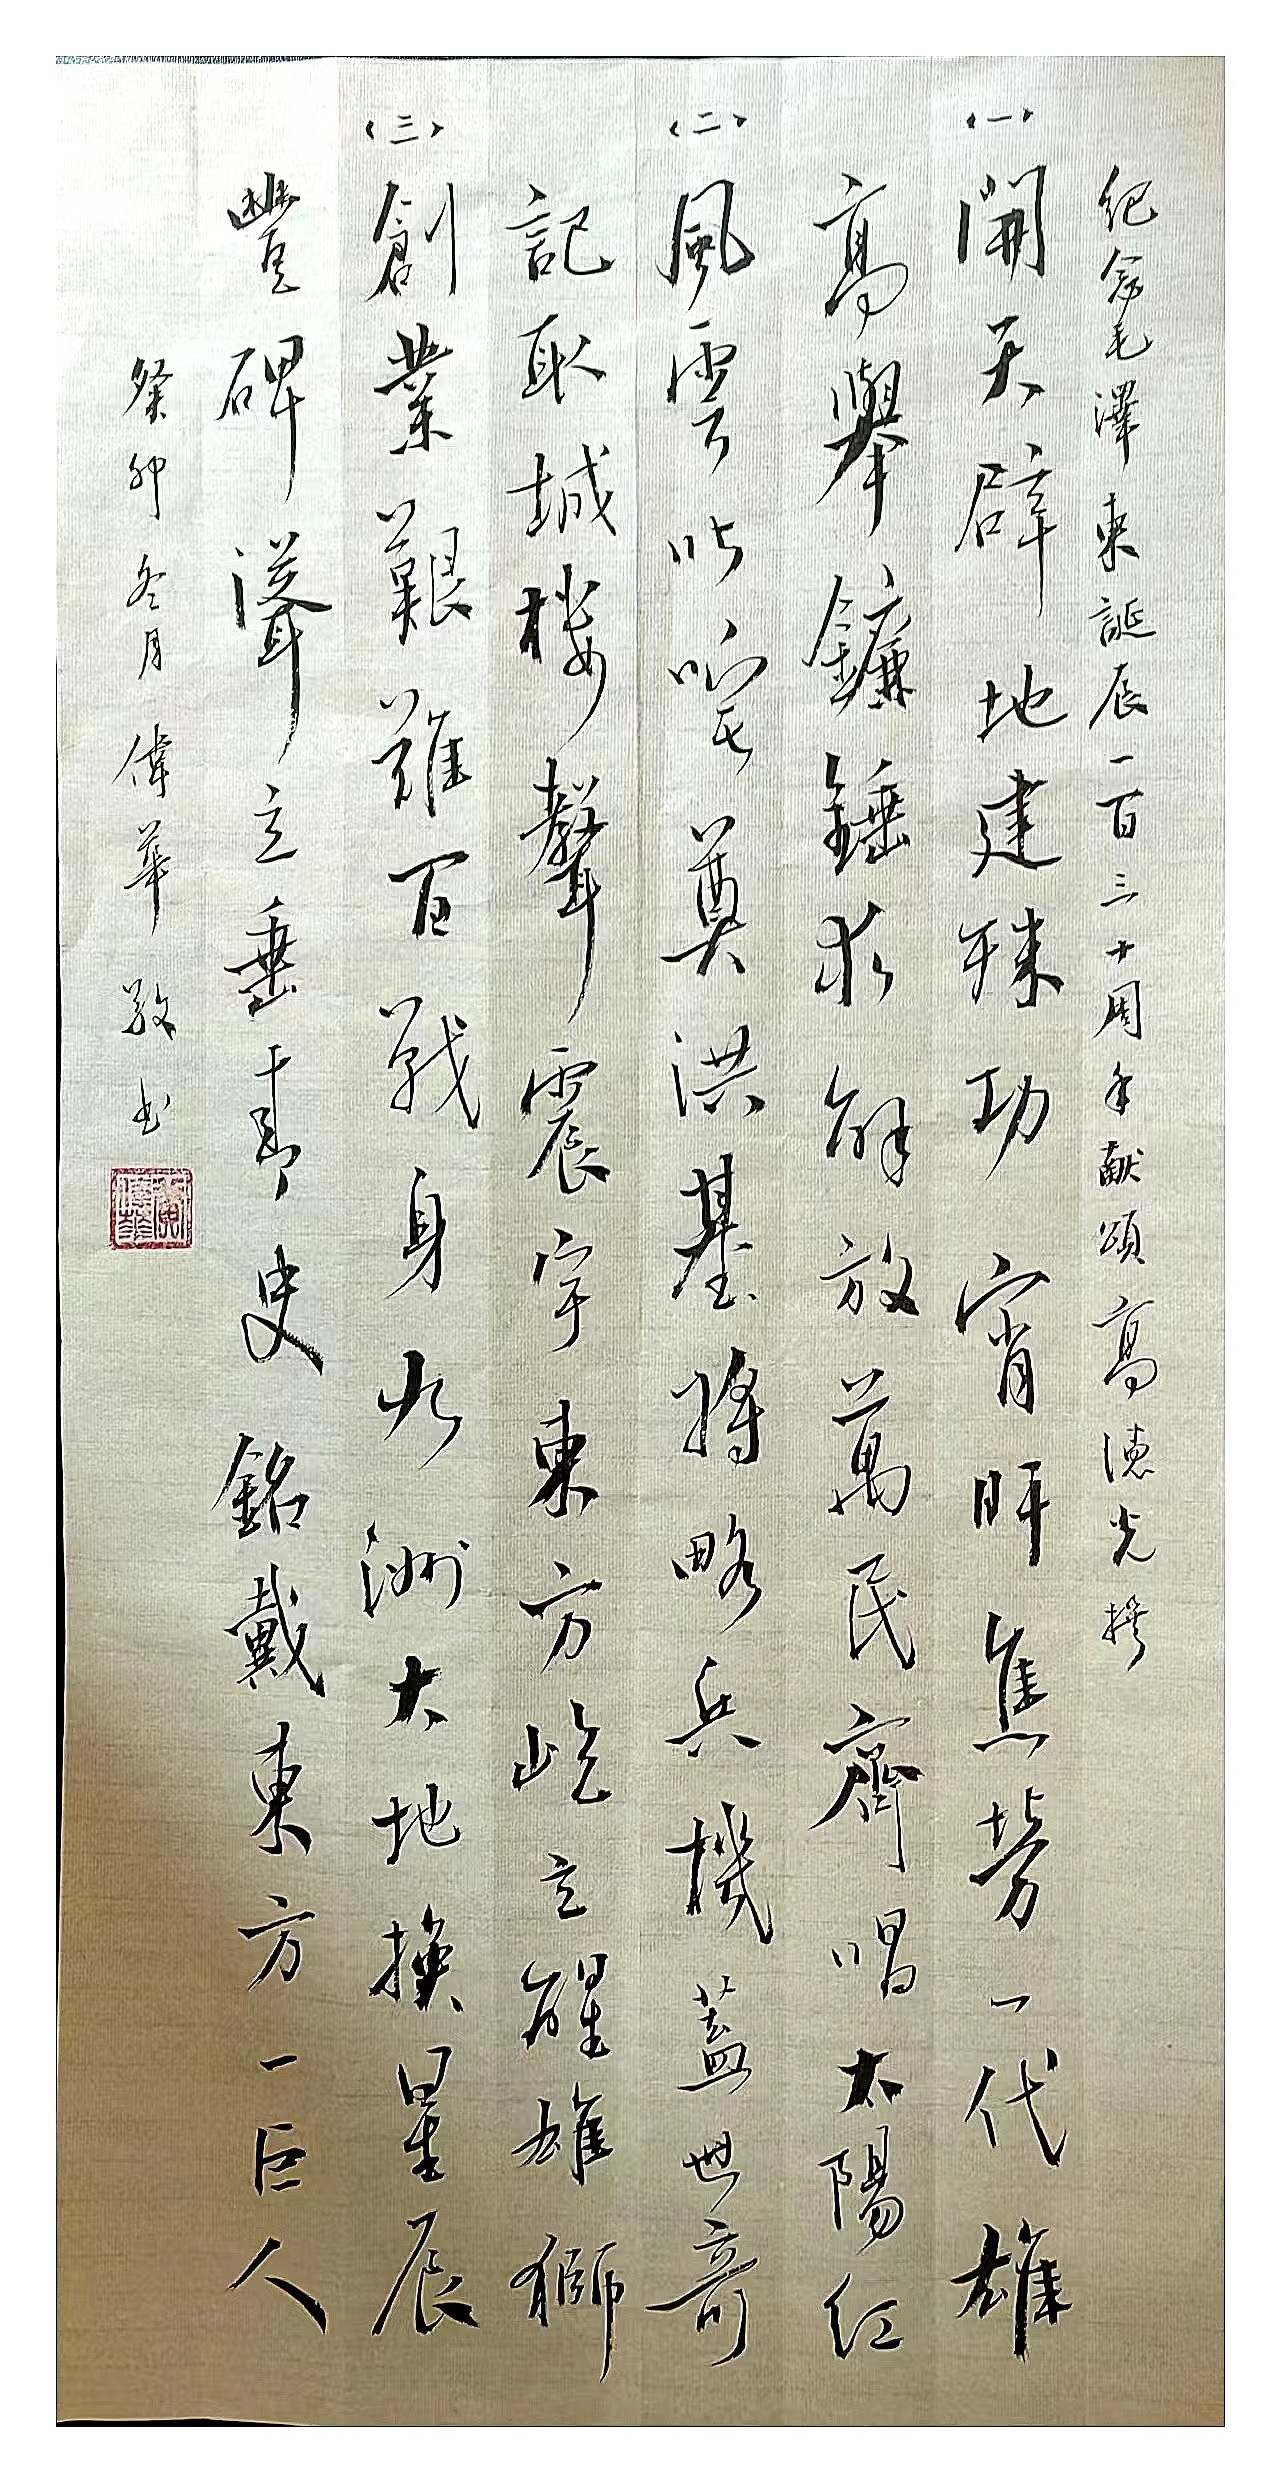 紀念毛澤東誕辰一百三十周年献頌 高德光撰
〈一〉
開天辟地建殊功 宵旰焦勞一代雄
高舉鐮錘求解放 萬民齊唱太陽红
〈二〉
風雲叱咤奠洪基 將略兵機蓋世奇
記取城樓聲震宇 東方屹立醒雄獅
〈三〉
創業艱難百戰身 九洲大地換星辰
豐碑聳立垂青史 銘戴東方一巨人
癸卯冬月偉華敬书